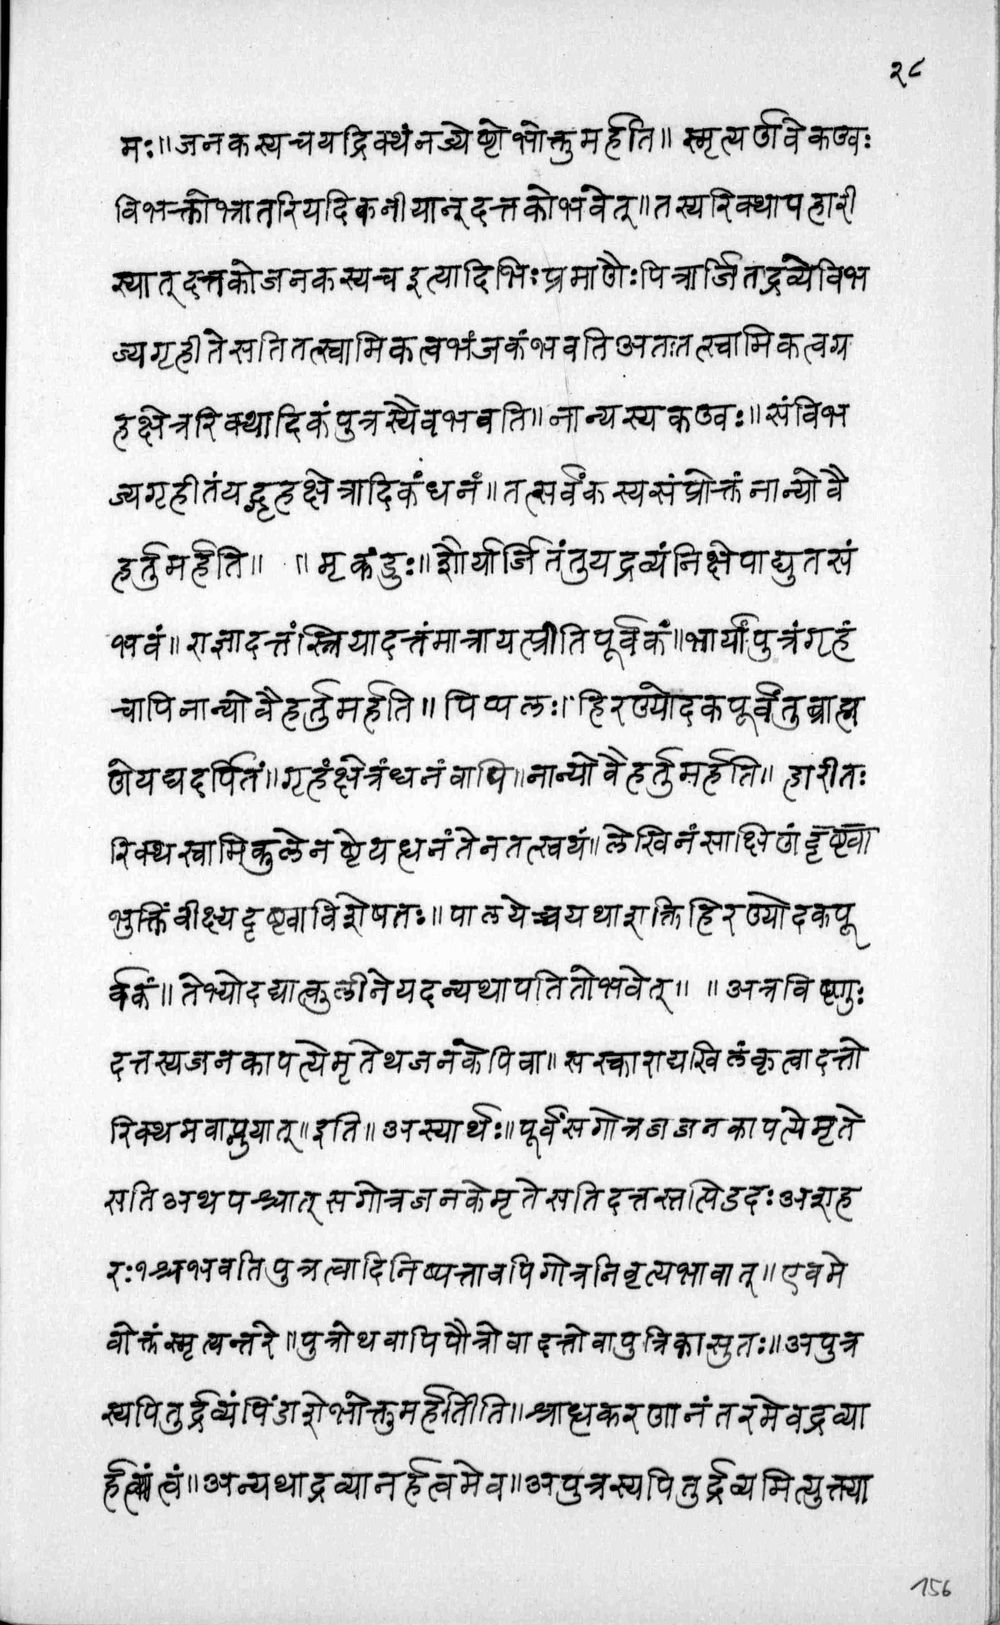 २८
मः॥जनकस्यचयद्रिक्थंनज्येष्टोभोक्तुमर्हति॥ स्मृत्यर्णवेकण्वः
विभक्तोभ्रातरियदिकनीयान्दत्तकोभवेत्॥तस्यरिक्थापहारी
स्यात्दत्तकोजनकस्यचइत्यादिभिःप्रमाणैःपित्रार्जितद्रव्येविभ
ज्यगृहीतेसतितत्स्वामिकत्वभंजकंभवतिअतःतत्स्वामिकत्वग्र
हक्षेत्ररिक्थादिकंपुत्रस्यैवभवति॥नान्यस्यकण्वः॥संविभ
ज्यगृहीतंयद्गृहक्षेत्रादिकंधनं॥तत्सर्वंकस्यसंप्रोक्तंनान्योवै
हर्तुमर्हति॥ ॥मृकंडुः॥शौर्यार्जितंतुयद्रव्यंनिक्षेपाद्युतसं
भवं॥राज्ञादत्तंस्त्रियादत्तंमात्रायत्प्रीतिपूर्वकं॥भार्यांपुत्रंगृहं
चापिनान्योवैहर्तुमर्हति॥पिप्पलः॥हिरण्योदकपूर्वंतुब्राह्म
णेयद्यदर्पितं॥गृहंक्षेत्रंधनंवापि॥नान्योवैहर्तुमर्हति॥ हारीतः
रिक्थस्वामिकुलेनष्टेयद्धनंतेनतत्स्वयं॥लेखिनंसाक्षिणंदृष्ट्वा
भुक्तिंवीक्ष्यदृष्ट्वाविशेषतः॥पालयेच्चयथाशक्तिहिरण्योदकपू
र्वकं॥तेभ्योदद्यात्कुलीनेयदन्यथापतितोभवेत्॥ ॥अत्रविष्णुः
दत्तस्यजनकापत्येमृतेथजनकेपिवा॥सस्काराद्यखिलंकृत्वादत्तो
रिक्थमवाप्नुयात्॥इति॥अस्यार्थः॥पूर्वंसगोत्रजाजनकापत्येमृते
सतिअथपश्चात्सगोत्रजनकेमृतेसतिदत्तस्तत्पिंडदःअशह
रः१श्चभवतिपुत्रत्वादिनिष्पत्तावपिगोत्रनिवृत्यभावात्॥एवमे
वोक्तंस्मृत्यन्तरे॥पुत्रोथवापिपौत्रोवादत्तोवापुत्रिकासुतः॥अपुत्र
स्यपितुर्द्रव्यंपिंडाशेभोक्तुमर्हतीति॥श्राद्धकरणानंतरमेवद्रव्या
र्हत्वं॥अन्यथाद्रव्यानर्हत्वमेव॥अपुत्रस्यपितुर्द्रव्यमित्युक्त्या
156